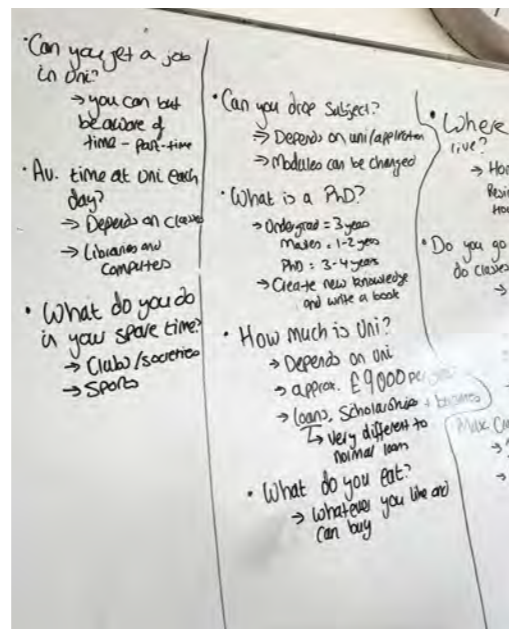 • Can you get a job
in Uni?
→ you can but
be aware of
time - part-time
• Av. time at Uni each
day?
→ Depends on classes
→ Libraries and
computers
• What do you do
in your spare time?
→ Clubs/societies
→ Sports
• Can you drop subject?
→ Depends on uni/application
→ Modules can be changed
• What is a PhD?
→ Undergrad = 3 years
Masters = 1-2 years
PhD = 3-4 years
→ Create new knowledge
and write a book
• How much is Uni?
→ Depends on Uni
→ approx. £9000 per
→ loans, Scholarships + bursaries
↳ very different to
normal loan
• What do you eat?
→ whatever you like and
can buy
• Where
live?
→
• Do you go
do classes
→
Max
→
→